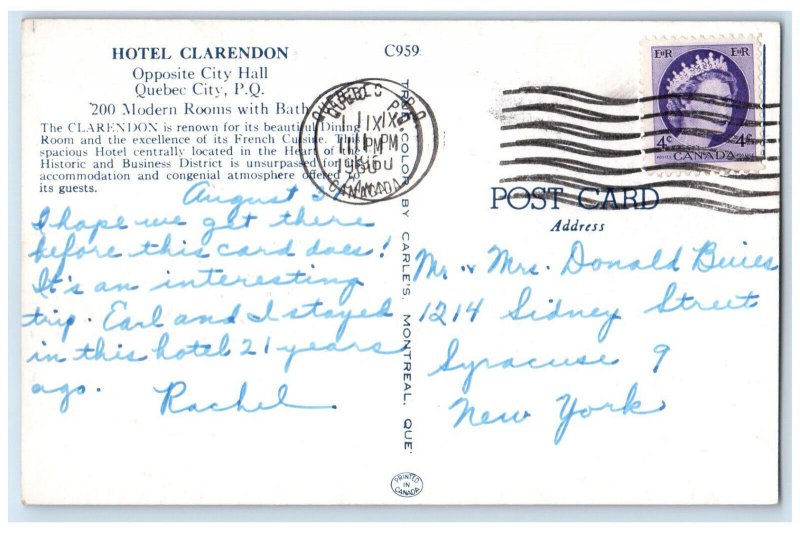 HOTEL CLARENDON
Opposite City Hall
Quebec City, P.Q.
200 Modern Rooms with Bath
The CLARENDON is renown for its beautiful Dining
Room and the excellence of its French Cuisine. This
spacious Hotel centrally located in the Heart of the
Historic and Business District is unsurpassed for its
accommodation and congenial atmosphere offered to
its guests.
C959
August 31
I hope we get there
before this card does!
It's an interesting
trip. Earl and I stayed
in this hotel 21 years
ago.
Rachel.
TRUE COLOR BY CARLE'S, MONTREAL, QUE.
PRINTED
IN
CANADA
QUEBEC P.Q.
1 IX
PM
1960
CANADA
EIIR EIIR
4¢ 4¢
POSTES CANADA POSTAGE
POST CARD
Address
Mr. & Mrs. Donald Buies
1214 Sidney Street
Syracuse 9
New York